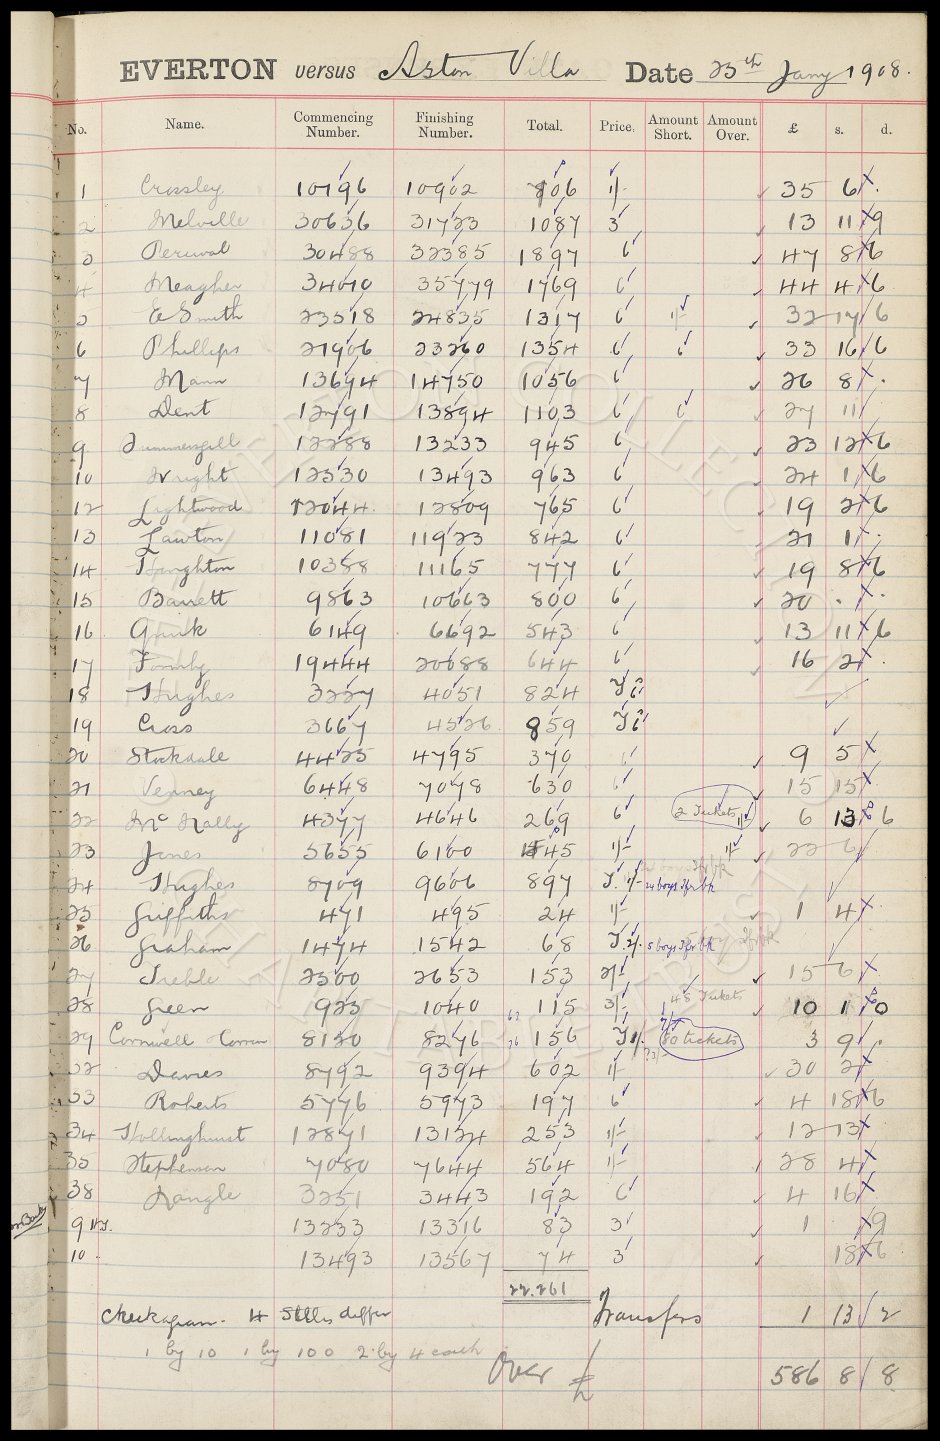 EVERTON versus Aston Villa Date 25th Jany 1908.
No. Name. Commencing Number. Finishing Number. Total. Price. Amount Short. Amount Over. £ s. d.
1 Crossley 10196 10902 706 1/- 35 6 .
2 Melville 30636 31723 1087 3 13 11 9
3 Percival 30488 32385 1897 6 47 8 6
4 Meagher 34010 35779 1769 6 44 4 6
5 E Smith 23518 24835 1317 6 1/- 32 17 6
6 Phillips 21906 23260 1354 6 6 33 16 6
7 Mann 13694 14750 1056 6 26 8 .
8 Dent 12791 13894 1103 6 6 27 11
9 Summersgill 12288 13233 945 6 23 12 6
10 Wright 12530 13493 963 6 24 1 6
12 Lightwood 12044 12809 765 6 19 2 6
13 Lawton 11081 11923 842 6 21 1 .
14 Houghton 10388 11165 777 6 19 8 6
15 Barrett 9863 10663 800 6 20 . .
16 6149 6692 543 6 13 11 6
17 Formby 19444 20088 644 6 16 2 .
18 Hughes 3227 4051 824
19 Cross 3667 4526 859
20 Stockdale 4425 4795 370 6 9 5
21 Venney 6448 7078 630 6 15 15
22 McNally 4377 4646 269 6 2 Tickets 1/- 6 13 6
23 Jones 5655 6100 445 1/- 1/- 22 6
24 Hughes 8709 9606 897 24 boys
25 Griffiths 471 495 24 1/- 1 4
26 Graham 1474 1542 68 5 boys
27 Treble 2500 2653 153 2/- 15 6
28 Green 925 1040 115 3/- 48 Tickets 10 1 0
29 Cornwell 8120 8276 156 80 tickets 3 9
32 Davies 8792 9394 602 1/- 30 2
33 Roberts 5776 5973 197 6 4 18 6
34 Hollinghurst 12871 13124 253 1/- 12 13
35 Stephenson 7080 7644 564 1/- 28 4
38 Nangle 3251 3443 192 6 4 16
9 13233 13316 83 3 1 9
10 . 13493 13567 74 3 18 6
22,261
4 Stiles differ Transfers 1 13 2
1 by 10 1 by 100 2 by 4 each
Over 586 8 8